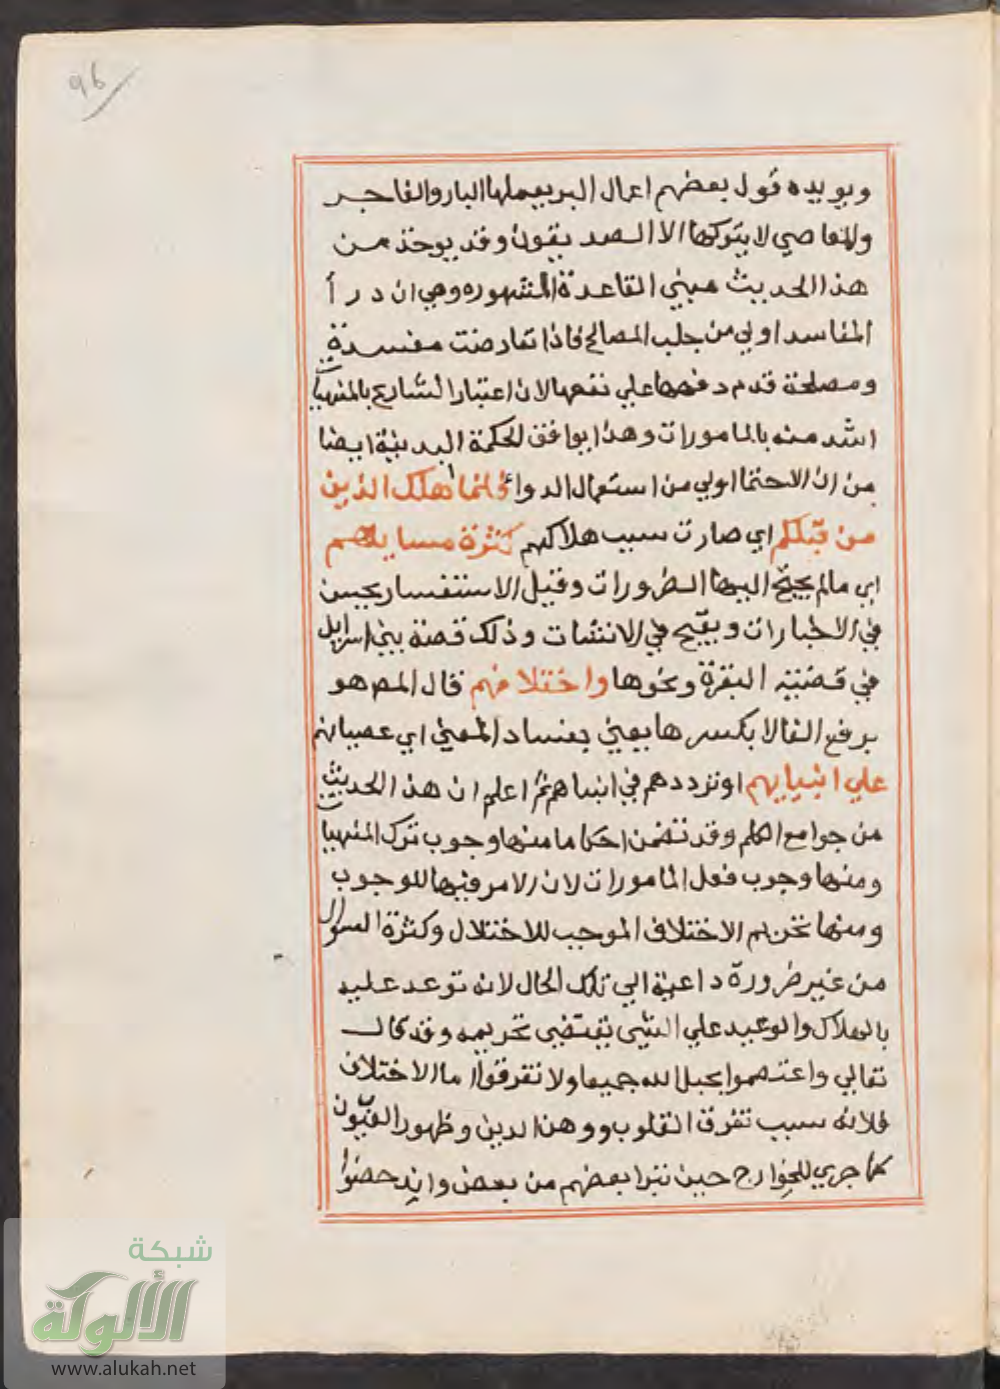 96
ويويده قول بعضهم اعمال البر يعملها البار والفاجر
والمعاصي لا يتركها الا الصديقون وقد يوخذ من
هذا الحديث مبني القاعدة المشهوره وهي ان درأ
المفاسد اولي من جلب المصالح فاذا تعارضت مفسدة
ومصلحة قدم دفعها علي نفعها لان اعتبار الشارع بالمنهيا
اشد منه بالمامورات وهذا يوافق الحكمة البدنية ايضا
من ان الاحتما اولي من استعمال الدواء فانما اهلك الذين
من قبلكم اي صارت سبب هلاكهم كثرة مسايلهم
اي مالم يحتج اليها الضرورات وقيل الاستفسار يحسن
في الاخبارات ويقبح في الانشات وذلك قصة بني اسرايل
في قضية البقرة ونحوها واختلافهم قال المص هو
برفع الفا لا بكسرها يعني بفساد المعني اي عصيانهم
علي انبيايهم او ترددهم في انبياهم ثم اعلم ان هذا الحديث
من جوامع الكلم وقد تضمن احكاما منها وجوب ترك المنهيا
ومنها وجوب فعل المامورات لان الامر فيها للوجوب
ومنها تحريم الاختلاف الموجب للاختلال وكثرة السوال
من غير ضرورة داعية الي تلك الحال لانه توعد عليه
بالهلاك والوعيد علي الشي يقتضي تحريمه وقد قال
تعالي واعتصموا بحبل الله جميعا ولا تفرقوا اما الاختلاف
فلانه سبب تفرق القلوب ووهن الدين وظهور
كما جري للخوارج حين تبرا بعضهم من بعض
شبكة
الألوكة
www.alukah.net